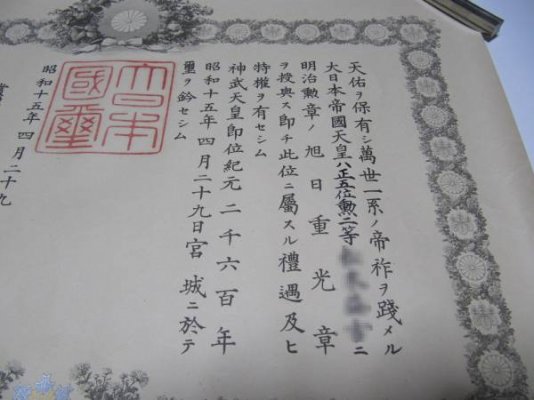 天佑ヲ保有シ萬世一系ノ帝祚ヲ踐メル
大日本帝國天皇ハ正五位勲二等ニ
明治勲章ノ旭日重光章
ヲ授與ス即チ此位ニ屬スル禮遇及ヒ
特權ヲ有セシム
神武天皇即位紀元二千六百年
昭和十五年四月二十九日宮城ニ於テ
璽ヲ鈐セシム
大日本
國璽
昭和十五年四月二十九
賞